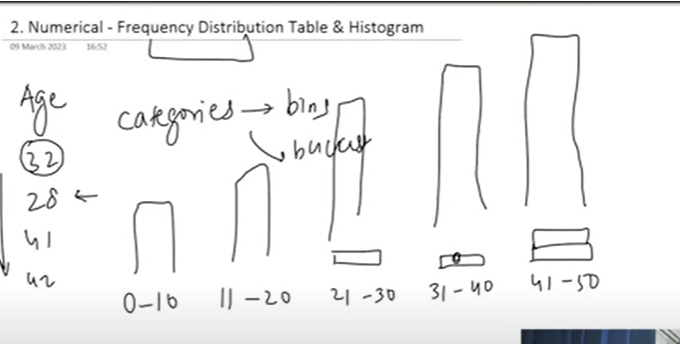 2. Numerical - Frequency Distribution Table & Histogram
09 March 2023 16:52
Age
categories → bins
32
28 ←
41
42
0-10 11-20 21-30 31-40 41-50